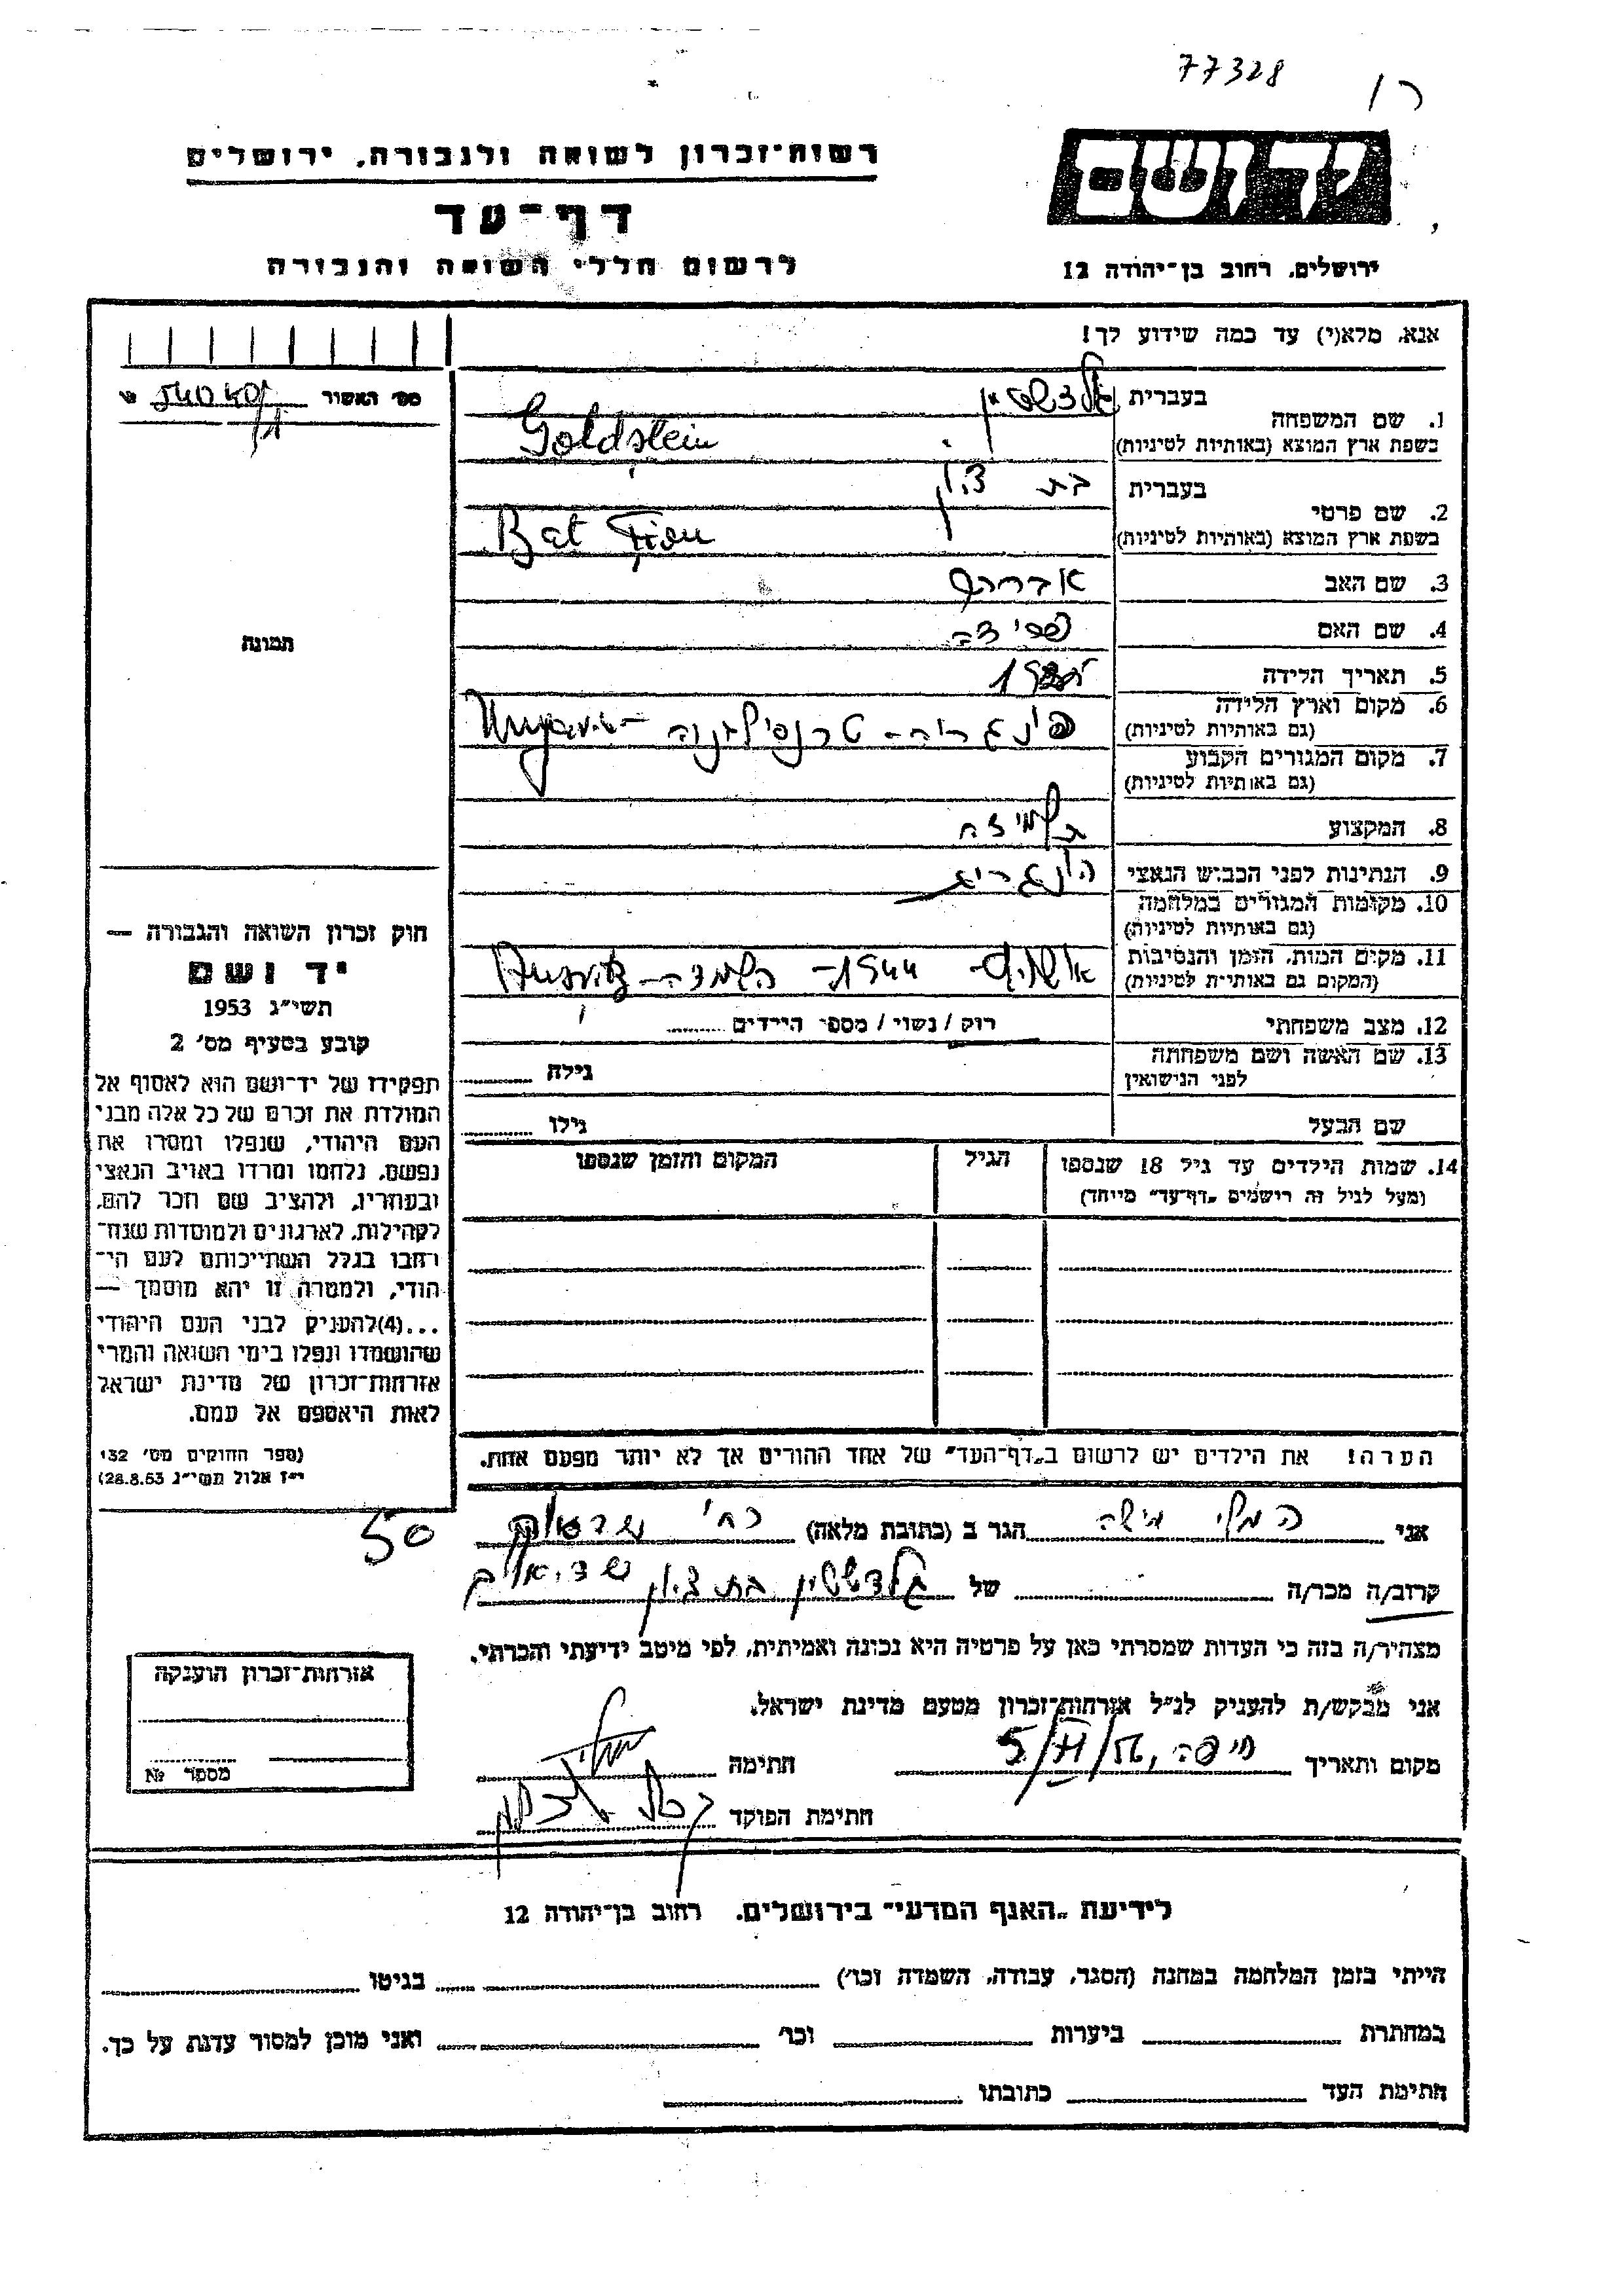 77328
יד ושם
ירושלים, רחוב בן־יהודה 12
רשות־זכרון לשואה ולגבורה, ירושלים
דף־עד
לרשום חללי השואה והגבורה
אנא, מלא(י) עד כמה שידוע לך!
1. שם המשפחה בעברית גולדשטיין
בשפת ארץ המוצא (באותיות לטיניות) Goldstein
2. שם פרטי בעברית בת ציון
בשפת ארץ המוצא (באותיות לטיניות) Bat Zion
3. שם האב אברהם
4. שם האם
5. תאריך הלידה
6. מקום וארץ הלידה הונגריה - טרנסילבניה -
(גם באותיות לטיניות)
7. מקום המגורים הקבוע
(גם באותיות לטיניות)
8. המקצוע תלמידה
9. הנתינות לפני הכבוש הנאצי הונגריה
10. מקומות המגורים במלחמה
(גם באותיות לטיניות)
11. מקום המות, הזמן והנסיבות 1944 - השמדה -
(המקום גם באותיות לטיניות)
12. מצב משפחתי רוק / נשוי / מספר הילדים
13. שם האשה ושם משפחתה
לפני הנישואין גילה
שם הבעל גילו
14. שמות הילדים עד גיל 18 שנספו הגיל המקום והזמן שנספו
(מעל לגיל זה רושמים „דף־עד" מיוחד)
הערה! את הילדים יש לרשום ב„דף־העד" של אחד ההורים אך לא יותר מפעם אחת.
מס' האשור
תמונה
חוק זכרון השואה והגבורה —
יד ושם
תשי"ג 1953
קובע בסעיף מס' 2
תפקידו של יד־ושם הוא לאסוף אל
המולדת את זכרם של כל אלה מבני
העם היהודי, שנפלו ומסרו את
נפשם, נלחמו ומרדו באויב הנאצי
ובעוזריו, ולהציב שם וזכר להם,
לקהילות, לארגונים ולמוסדות שנח־
רבו בגלל השתייכותם לעם הי־
הודי, ולמטרה זו יהא מוסמך —
...(4)להעניק לבני העם היהודי
שהושמדו ונפלו בימי השואה והמרי
אזרחות־זכרון של מדינת ישראל
לאות היאספם אל עמם.
(ספר החוקים מס' 132
י"ז אלול תשי"ג 28.8.53)
50
אני הגר ב (כתובת מלאה) רח'
קרוב/ה מכר/ה של גולדשטיין בת ציון
מצהיר/ה בזה כי העדות שמסרתי כאן על פרטיה היא נכונה ואמיתית, לפי מיטב ידיעתי והכרתי.
אני מבקש/ת להעניק לנ"ל אזרחות־זכרון מטעם מדינת ישראל.
מקום ותאריך חיפה, חתימה
חתימת הפוקד
אזרחות־זכרון הוענקה
מספר №
לידיעת „האגף המדעי" בירושלים. רחוב בן־יהודה 12
הייתי בזמן המלחמה במחנה (הסגר, עבודה, השמדה וכו') בגיטו
במחתרת ביערות וכו' ואני מוכן למסור עדות על כך.
חתימת העד כתובתו